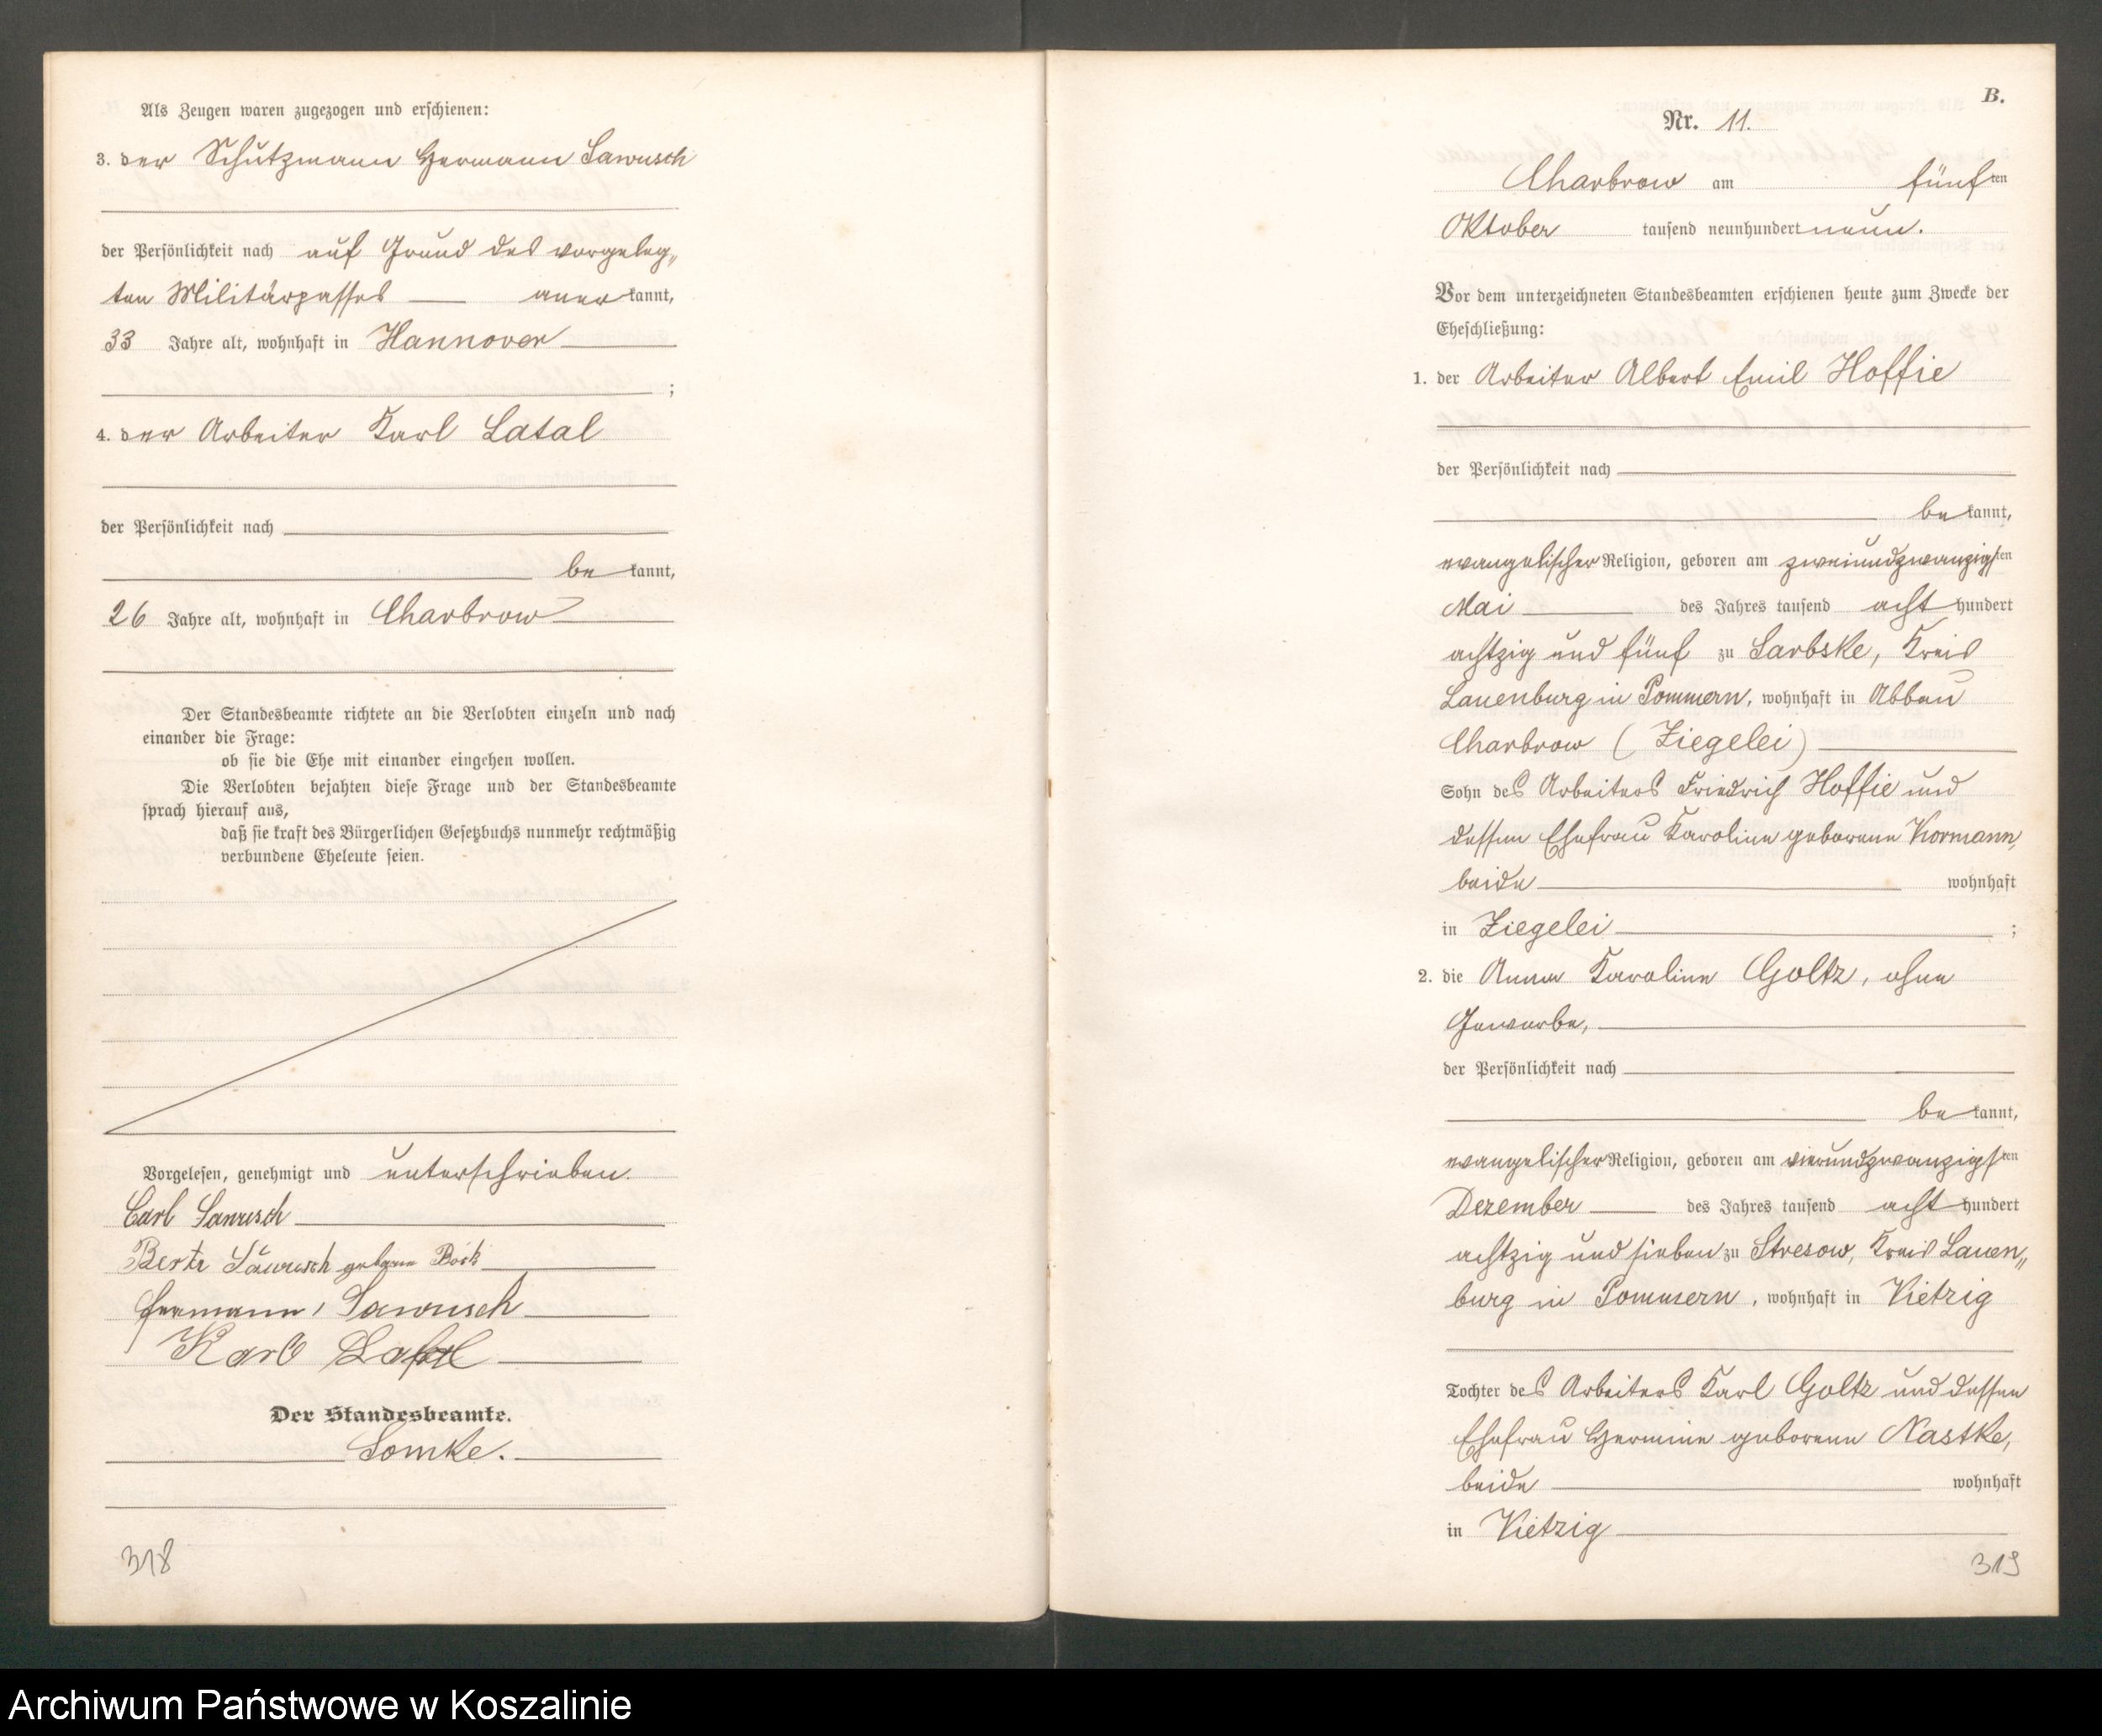 Als Zeugen waren zugezogen und erschienen:
3. der Schutzmann Hermann Sawusch
der Persönlichkeit nach auf Grund des vorgeleg„
ten Militärpasses anerkannt,
33 Jahre alt, wohnhaft in Hannover
;
4. der Arbeiter Karl Latal
der Persönlichkeit nach
bekannt,
26 Jahre alt, wohnhaft in Charbrow
Der Standesbeamte richtete an die Verlobten einzeln und nach
einander die Frage:
ob sie die Ehe mit einander eingehen wollen.
Die Verlobten bejahten diese Frage und der Standesbeamte
sprach hierauf aus,
daß sie kraft des Bürgerlichen Gesetzbuchs nunmehr rechtmäßig
verbundene Eheleute seien.
Vorgelesen, genehmigt und unterschrieben.
Carl Sawusch
Berta Sawusch geborene Bock
Hermann Sawusch
Karl Latal
Der Standesbeamte.
Lomke.
318
B.
Nr. 11.
Charbrow am fünften
Oktober tausend neunhundert neun.
Vor dem unterzeichneten Standesbeamten erschienen heute zum Zwecke der
Eheschließung:
1. der Arbeiter Albert Emil Hoffie
der Persönlichkeit nach
bekannt,
evangelischer Religion, geboren am zweiundzwanzigsten
Mai des Jahres tausend achthundert
achtzig und fünf zu Sarbske, Kreis
Lauenburg in Pommern, wohnhaft in Abbau
Charbrow (Ziegelei)
Sohn des Arbeiters Friedrich Hoffie und
dessen Ehefrau Karoline geborene Kormann,
beide wohnhaft
in Ziegelei ;
2. die Anna Karoline Goltz, ohne
Gewerbe,
der Persönlichkeit nach
bekannt,
evangelischer Religion, geboren am vierundzwanzigsten
Dezember des Jahres tausend achthundert
achtzig und sieben zu Stresow, Kreis Lauen„
burg in Pommern, wohnhaft in Vietzig
Tochter des Arbeiters Karl Goltz und dessen
Ehefrau Hermine geborene Nastke,
beide wohnhaft
in Vietzig
319
Archiwum Państwowe w Koszalinie